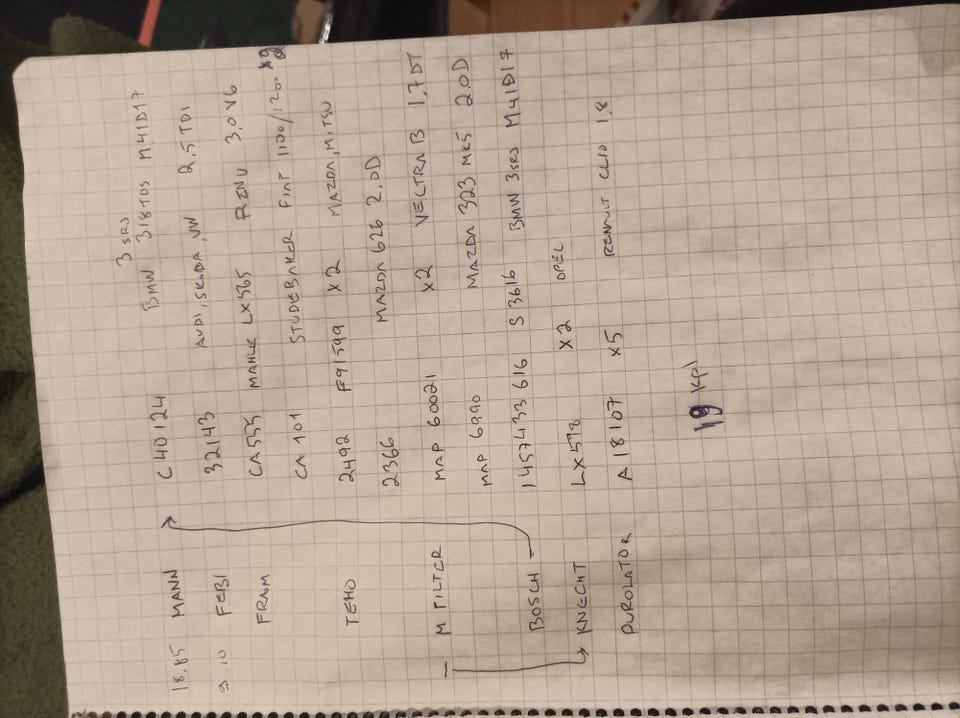 3 SRJ
18.85 MANN C 40 124 BMW 318 TDS M41D17
9.10 FEBI 32143 AUDI, SKODA, VW 2,5 TDI
FRAM CA555 MAHLE LX565 RENU 3.0 V6
CA 101 STUDEBAKER FIAT 1100/120.
TEHO 2492 F91599 X2 MAZDA, MITSU
2366 MAZDA 626 2.0D
M FILTER MAP 60021 X2 VECTRA B 1,7 DT
MAP 6990 MAZDA 323 MK5 2.0D
BOSCH 1457433 616 S 3616 BMW 3SRJ M41D17
KNECHT LX578 X2 OPEL
PUROLATOR A18107 X5 RENAULT CLIO 1.8
19 kpl